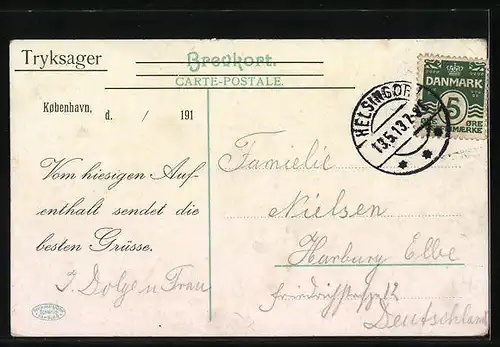 Tryksager
Brevkort.
CARTE-POSTALE.
København, d. / 191
Vom hiesigen Auf-
enthalt sendet die
besten Grüsse.
J. Dolge u Frau
HELSINGØR
13.5.13 7-
DANMARK
5
ØRE
MÆRKE
Familie
Nielsen
Harburg Elbe
Friedrichstrasse 12
Deutschland